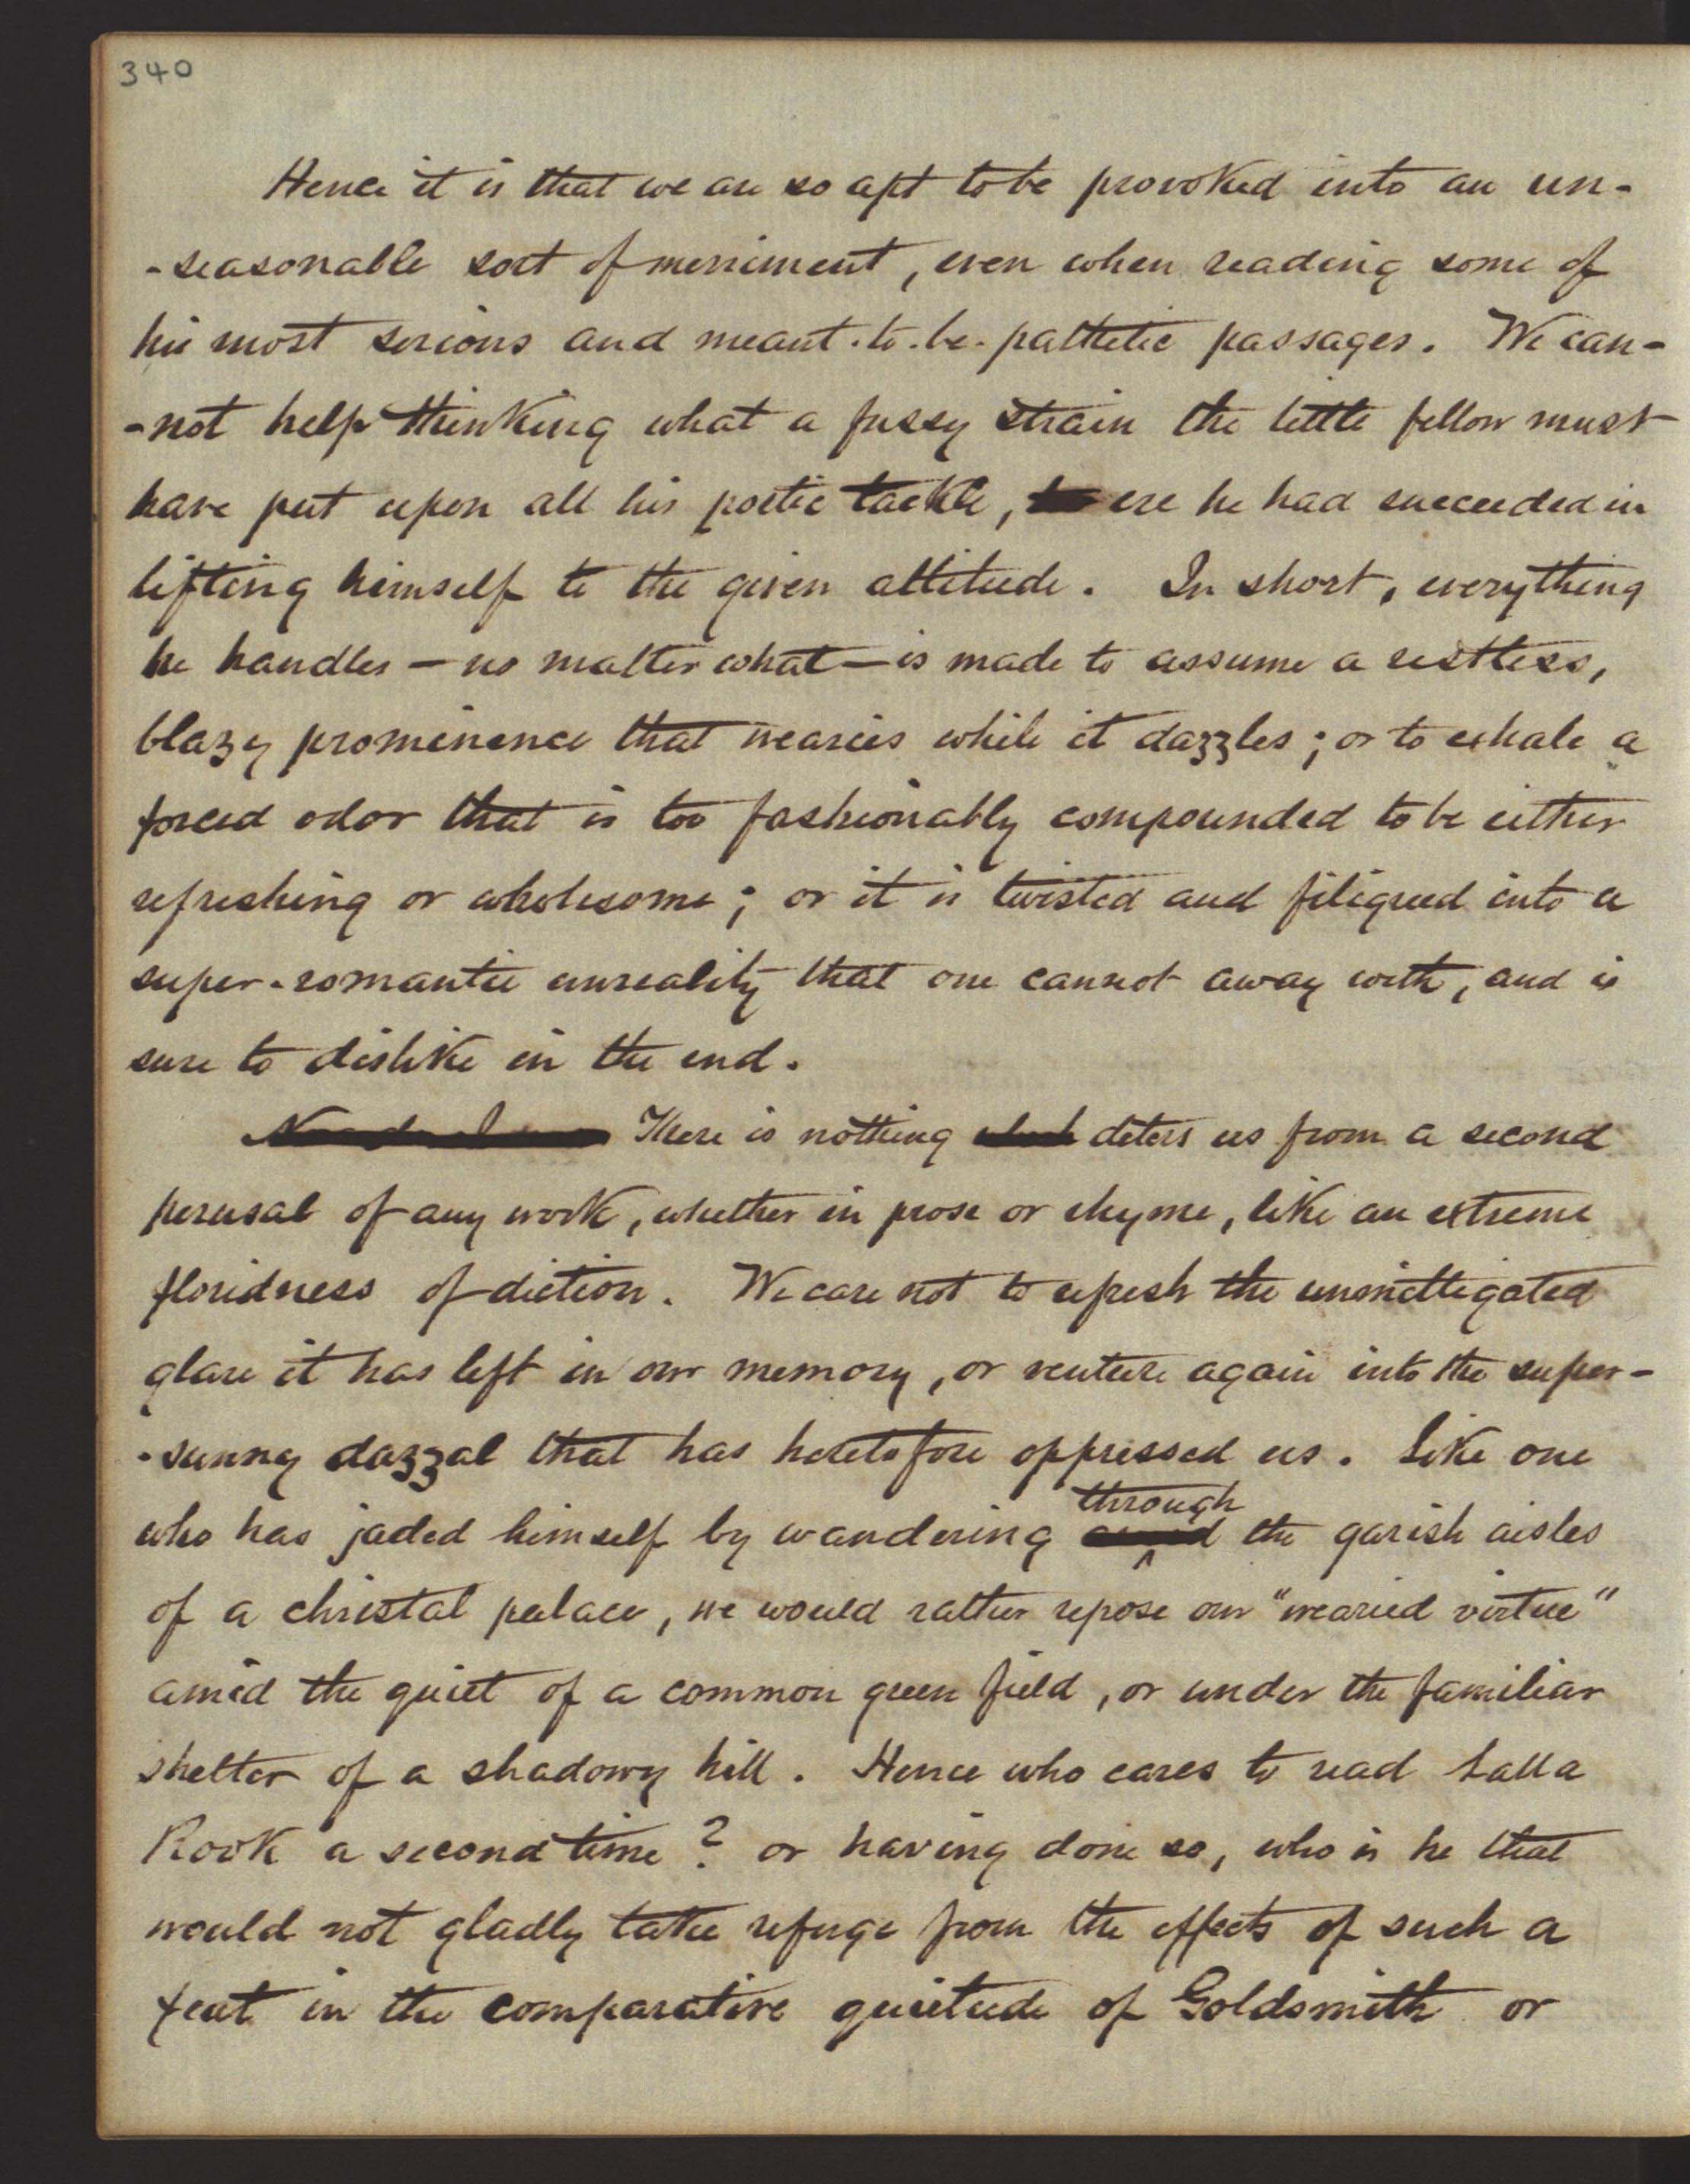 340
Hence it is that we are so apt to be provoked into an un-
-seasonable sort of merriment, even when reading some of
his most serious and meant-to-be-pathetic passages. We can-
-not help thinking what a fussy strain the little fellow must
have put upon all his poetic tackle, ere he had succeeded in
lifting himself to the given altitude. In short, everything
he handles — no matter what — is made to assume a restless,
blazy prominence that wearies while it dazzles; or to exhale a
forced odor that is too fashionably compounded to be either
refreshing or wholesome; or it is twisted and filigreed into a
super-romantic unreality that one cannot away with, and is
sure to dislike in the end.
There is nothing deters us from a second
perusal of any work, whether in prose or rhyme, like an extreme
floridness of diction. We care not to refresh the unmittigated
glare it has left in our memory, or venture again into the super-
-sunny dazzal that has heretofore oppressed us. Like one
who has jaded himself by wandering through the garish aisles
of a christal palace, we would rather repose our "wearied virtue"
amid the quiet of a common green field, or under the familiar
shelter of a shadowy hill. Hence who cares to read Lalla
Rook a second time? or having done so, who is he that
would not gladly take refuge from the effects of such a
feat in the comparative quietude of Goldsmith or